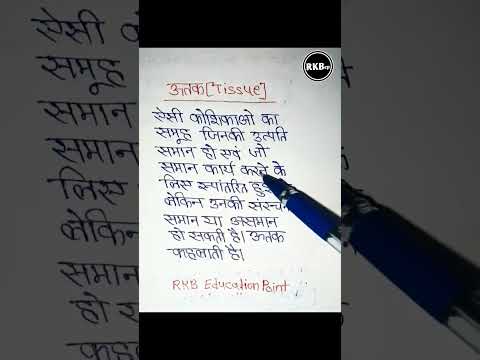 RKB
ऊतक [Tissue]
ऐसी कोशिकाओ का
समूह जिनकी उत्पति
समान हो एवं जो
समान कार्य करने के
लिए रूपांतरित
लेकिन उनकी
समान या असमान
हो सकती है। ऊतक
कहलाती है।
RKB Education Point